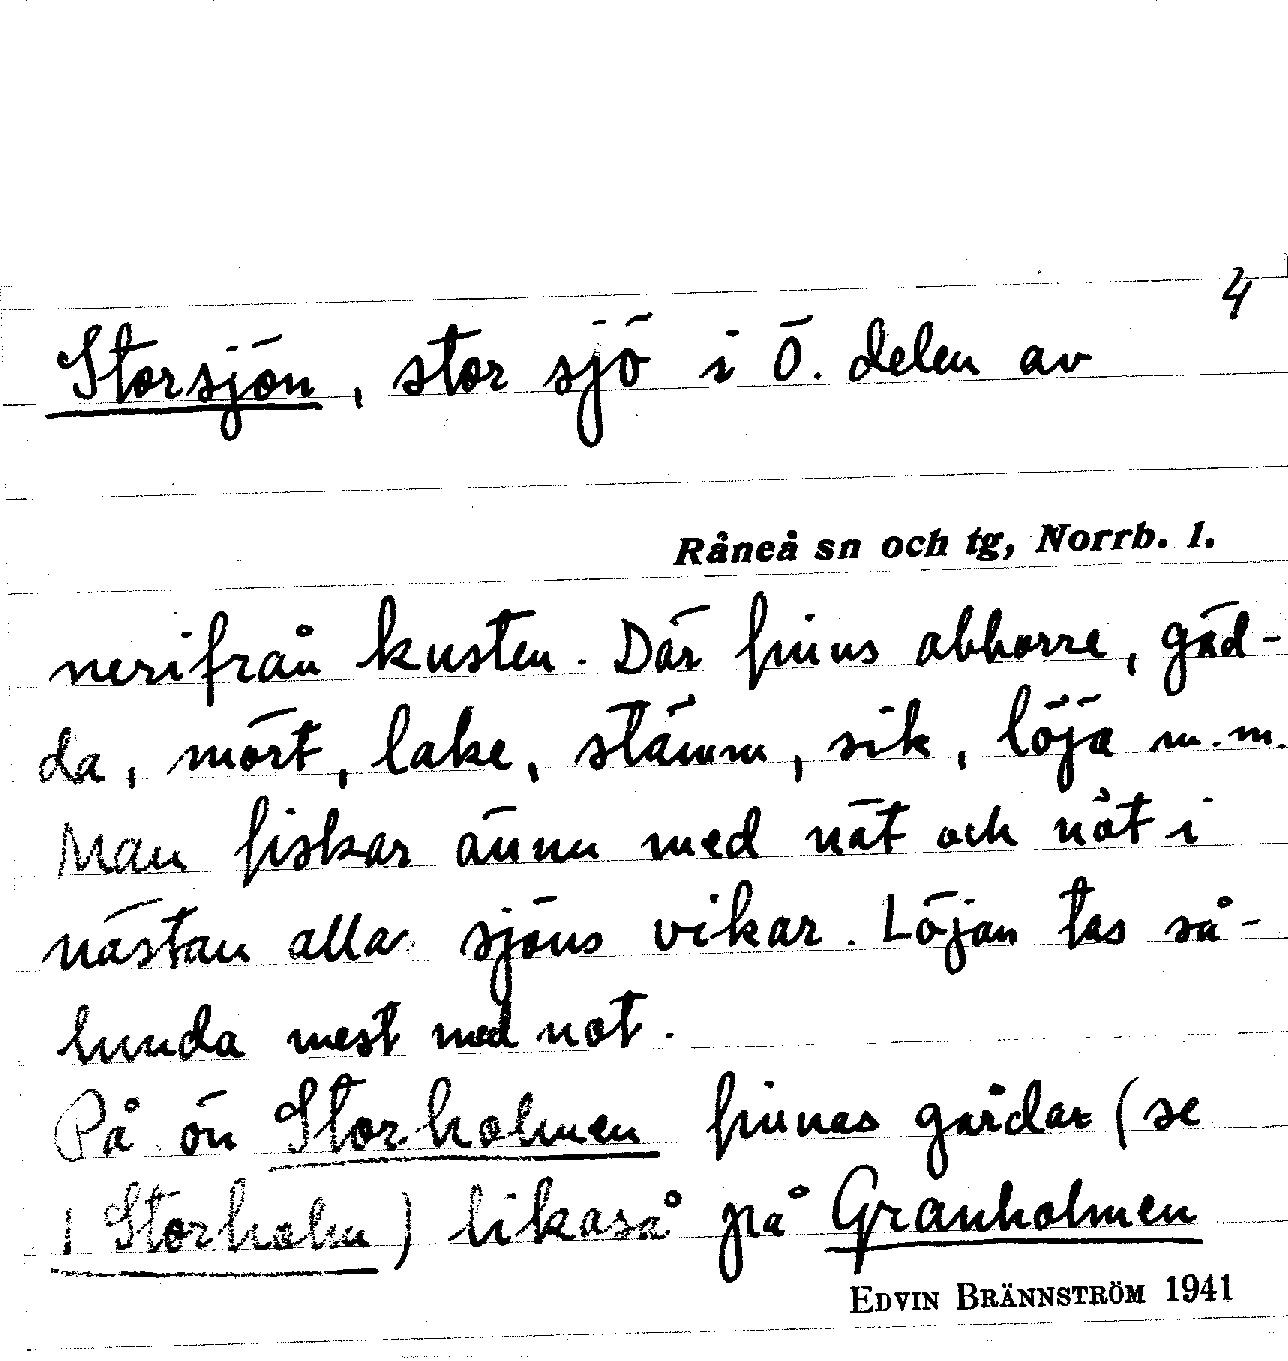 4
Storsjön, stor sjö i Ö. delen av
Råneå sn och tg, Norrb. l.
nerifrån kusten. Där finns abborre, gäd-
da, mört, lake, stämm, sik, löja m.m.
Man fiskar ännu med nät och nöt i
nästan alla sjöns vikar. Löjan tas så-
lunda mest med not.
På ön Storholmen finnas gårdar (se
1 Storholm) likaså på Granholmen
EDVIN BRÄNNSTRÖM 1941